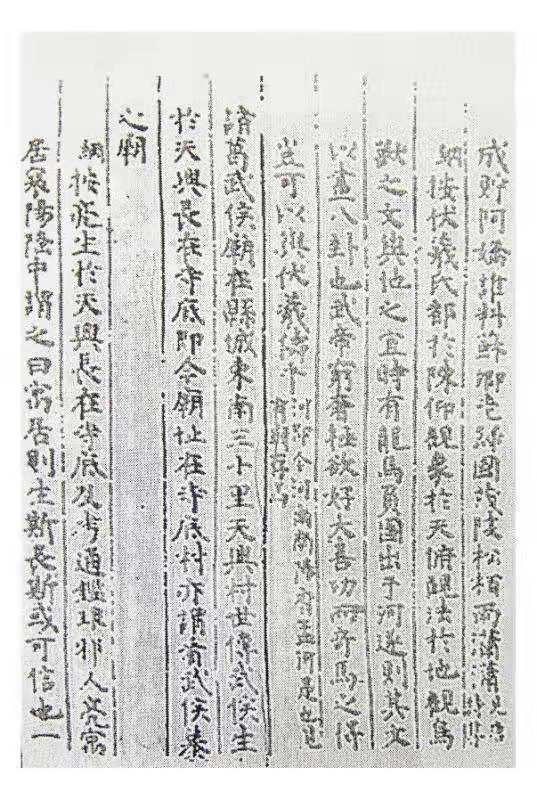 成貯阿嬌誰料蘇卿老歸國茂陵松栢雨蕭蕭
綱按伏羲氏都於陳仰觀象於天俯觀法於地觀鳥
獸之文與地之宜時有龍馬負圖出于河遂則其文
以畫八卦也武帝窮奢極欲好大喜功而奇馬之得
豈可以與伏羲倫乎
河即今河南
府孟河是也
諸葛武侯廟在縣城東南三十里天興村世傳武侯生
於天興長在寺底即今廟址在寺底村亦謂有武侯
之祠
綱按亮生於天興長在寺底及考通鑑琅邪人亮寓
居襄陽隆中謂之曰寓居則生斯長斯或可信也一